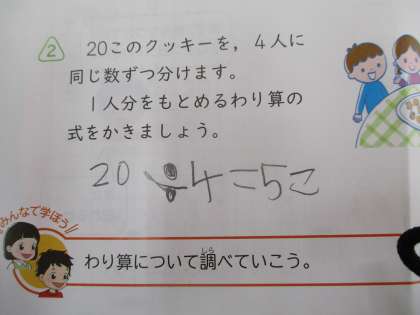 2 20このクッキーを，4人に
同じ数ずつ分けます。
1人分をもとめるわり算の
式をかきましょう。
20÷4=5こ
みんなで学ぼう!!
わり算について調べていこう。
しら